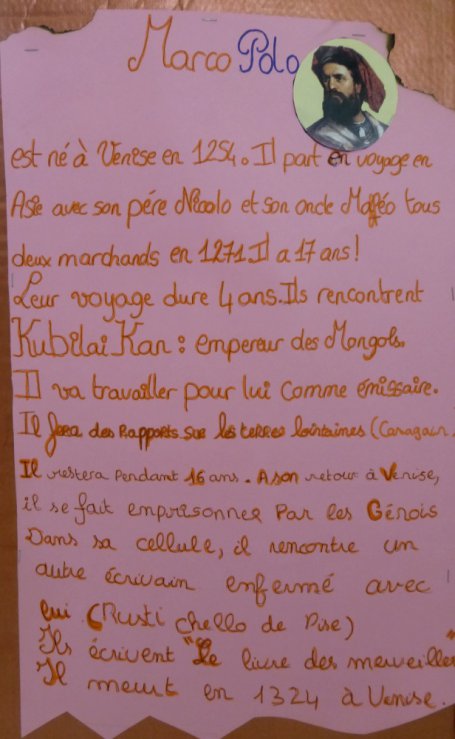 Marco Polo
est né à Venise en 1254. Il part en voyage en
Asie avec son pére Nicolo et son oncle Mafféo tous
deux marchands en 1271. Il a 17 ans!
Leur voyage dure 4 ans. Ils rencontrent
Kubilai Kan : empereur des Mongols.
Il va travailler pour lui comme émissaire.
Il fera des Rapports sur les terres lointaines (
Il restera Pendant 16 ans. A son retour à Venise,
il se fait emprisonner Par les Génois
Dans sa cellule, il rencontre un
autre écrivain enfermé avec
lui (Rusti chello de Pise)
Ils écrivent "Le livre des merveilles"
Il meurt en 1324 à Venise.